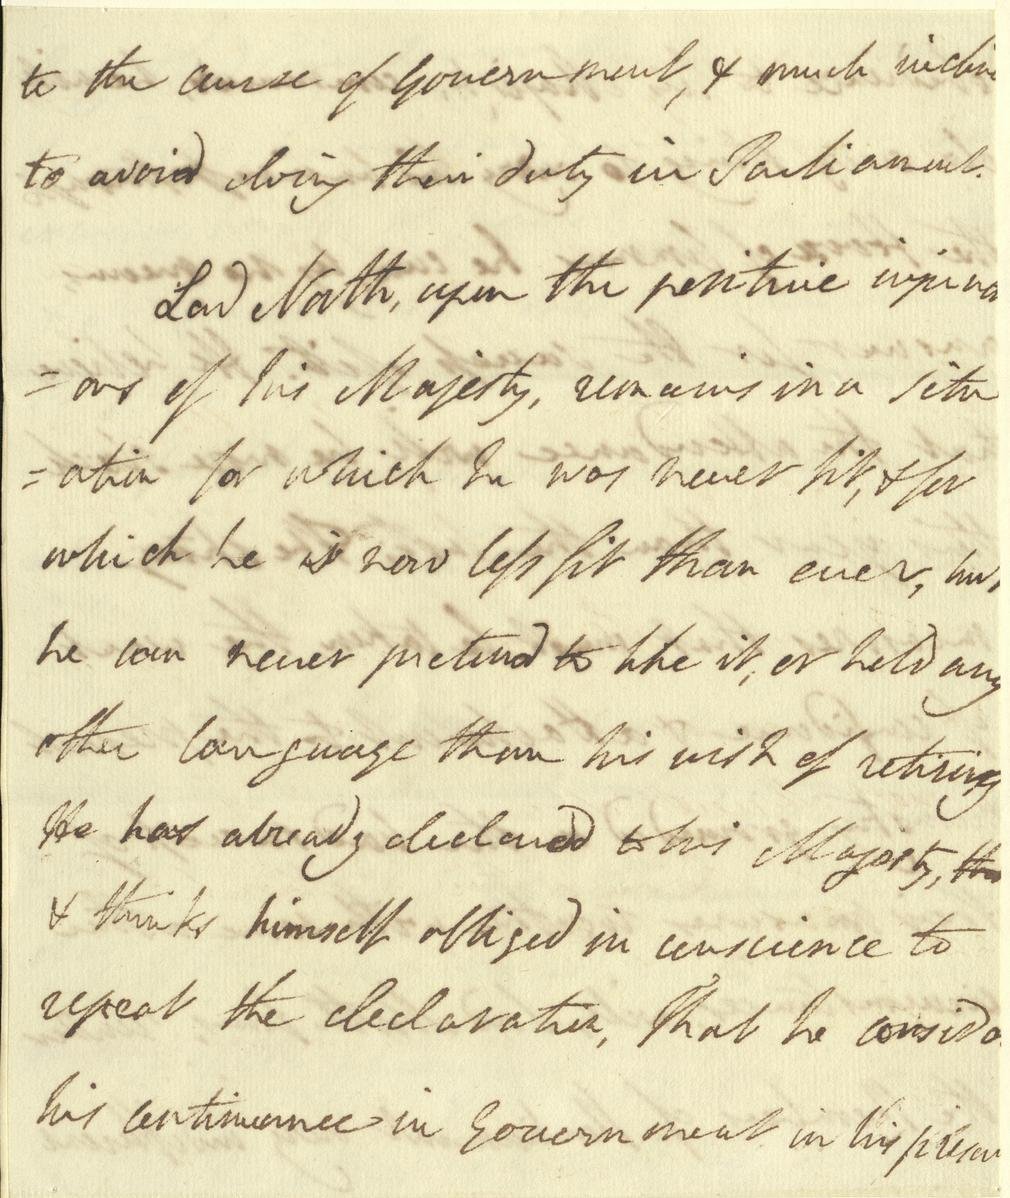 to the cause of Government, & much incline
to avoid doing their duty in Parliament.
Lord North, upon the positive injuncti
=ons of his Majesty, remains in a situ
=ation for which he was never fit, & for
which he is now less fit than ever, but
he can never pretend to like it, or hold any
other language than his wish of retiring
He has already declared to his Majesty, tha
& thinks himself obliged in conscience to
repeat the declaration, That he conside
his continuance in Government in his presen